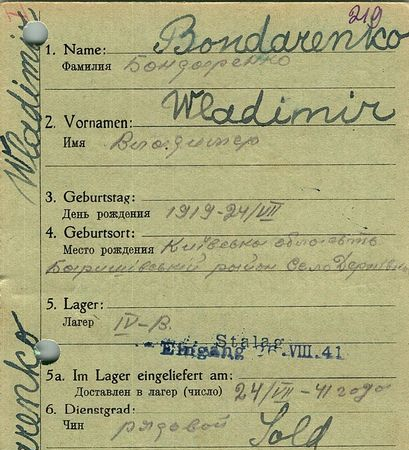 219
1. Name: Bondarenko
Фамилия Бондаренко
2. Vornamen: Wladimir
Имя Владимер
3. Geburtstag:
День рождения 1919-24/VII
4. Geburtsort:
Место рождения Київська область
район Село
5. Lager:
Лагер IV-B.
Stalag
Eingang VIII.41
5a. Im Lager eingeliefert am:
Доставлен в лагер (число) 24/VII-41 года
6. Dienstgrad:
Чин рядовой Sold
Wladimir
arenko